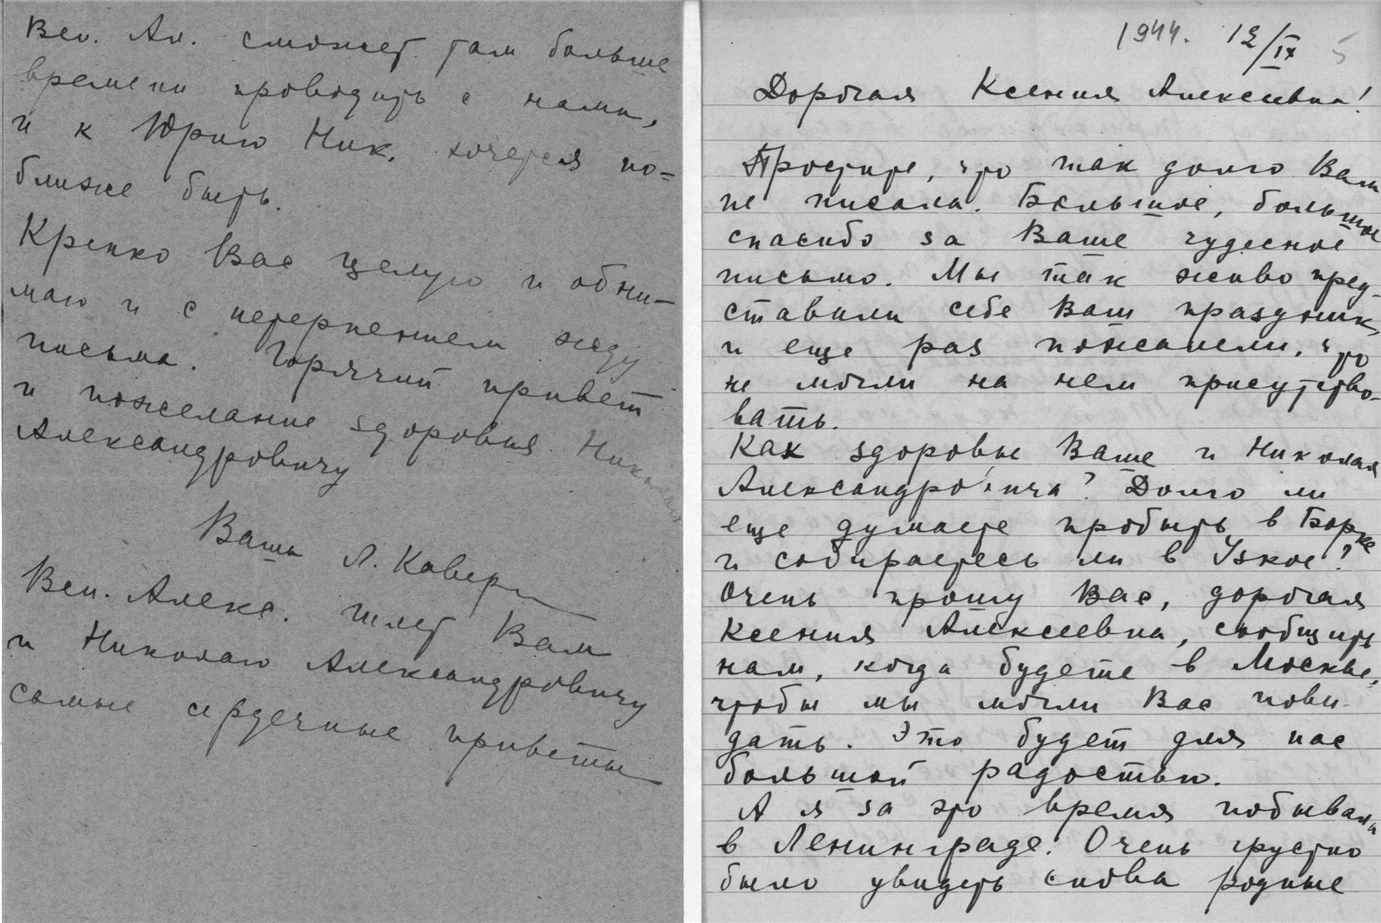 Вен. Ал. сможет там больше
времени проводить с нами,
и к Юрию Ник. хочется по=
ближе быть.
Крепко Вас целую и обни-
маю и с нетерпением жду
письма. Горячий привет
и пожелание здоровья Николаю
Александровичу
Ваша Л. Каверина
Вен. Алекс. шлет Вам
и Николаю Александровичу
самые сердечные приветы
1944. 12/IX 5
Дорогая Ксения Алексеевна!
Простите, что так долго Вам
не писала. Большое, большое
спасибо за Ваше чудесное
письмо. Мы так живо пред-
ставили себе Ваш праздник,
и еще раз пожалели, что
не могли на нем присутство-
вать.
Как здоровье Ваше и Николая
Александровича? Долго ли
еще думаете пробыть в Борке
и собираетесь ли в Узкое?
Очень прошу Вас, дорогая
Ксения Алексеевна, сообщить
нам, когда будете в Москве,
чтобы мы могли Вас пови-
дать. Это будет для нас
большой радостью.
А я за это время побывала
в Ленинграде. Очень грустно
было увидеть снова родные